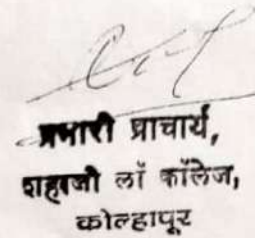 प्रभारी प्राचार्य,
शहाजी लॉ कॉलेज,
कोल्हापूर